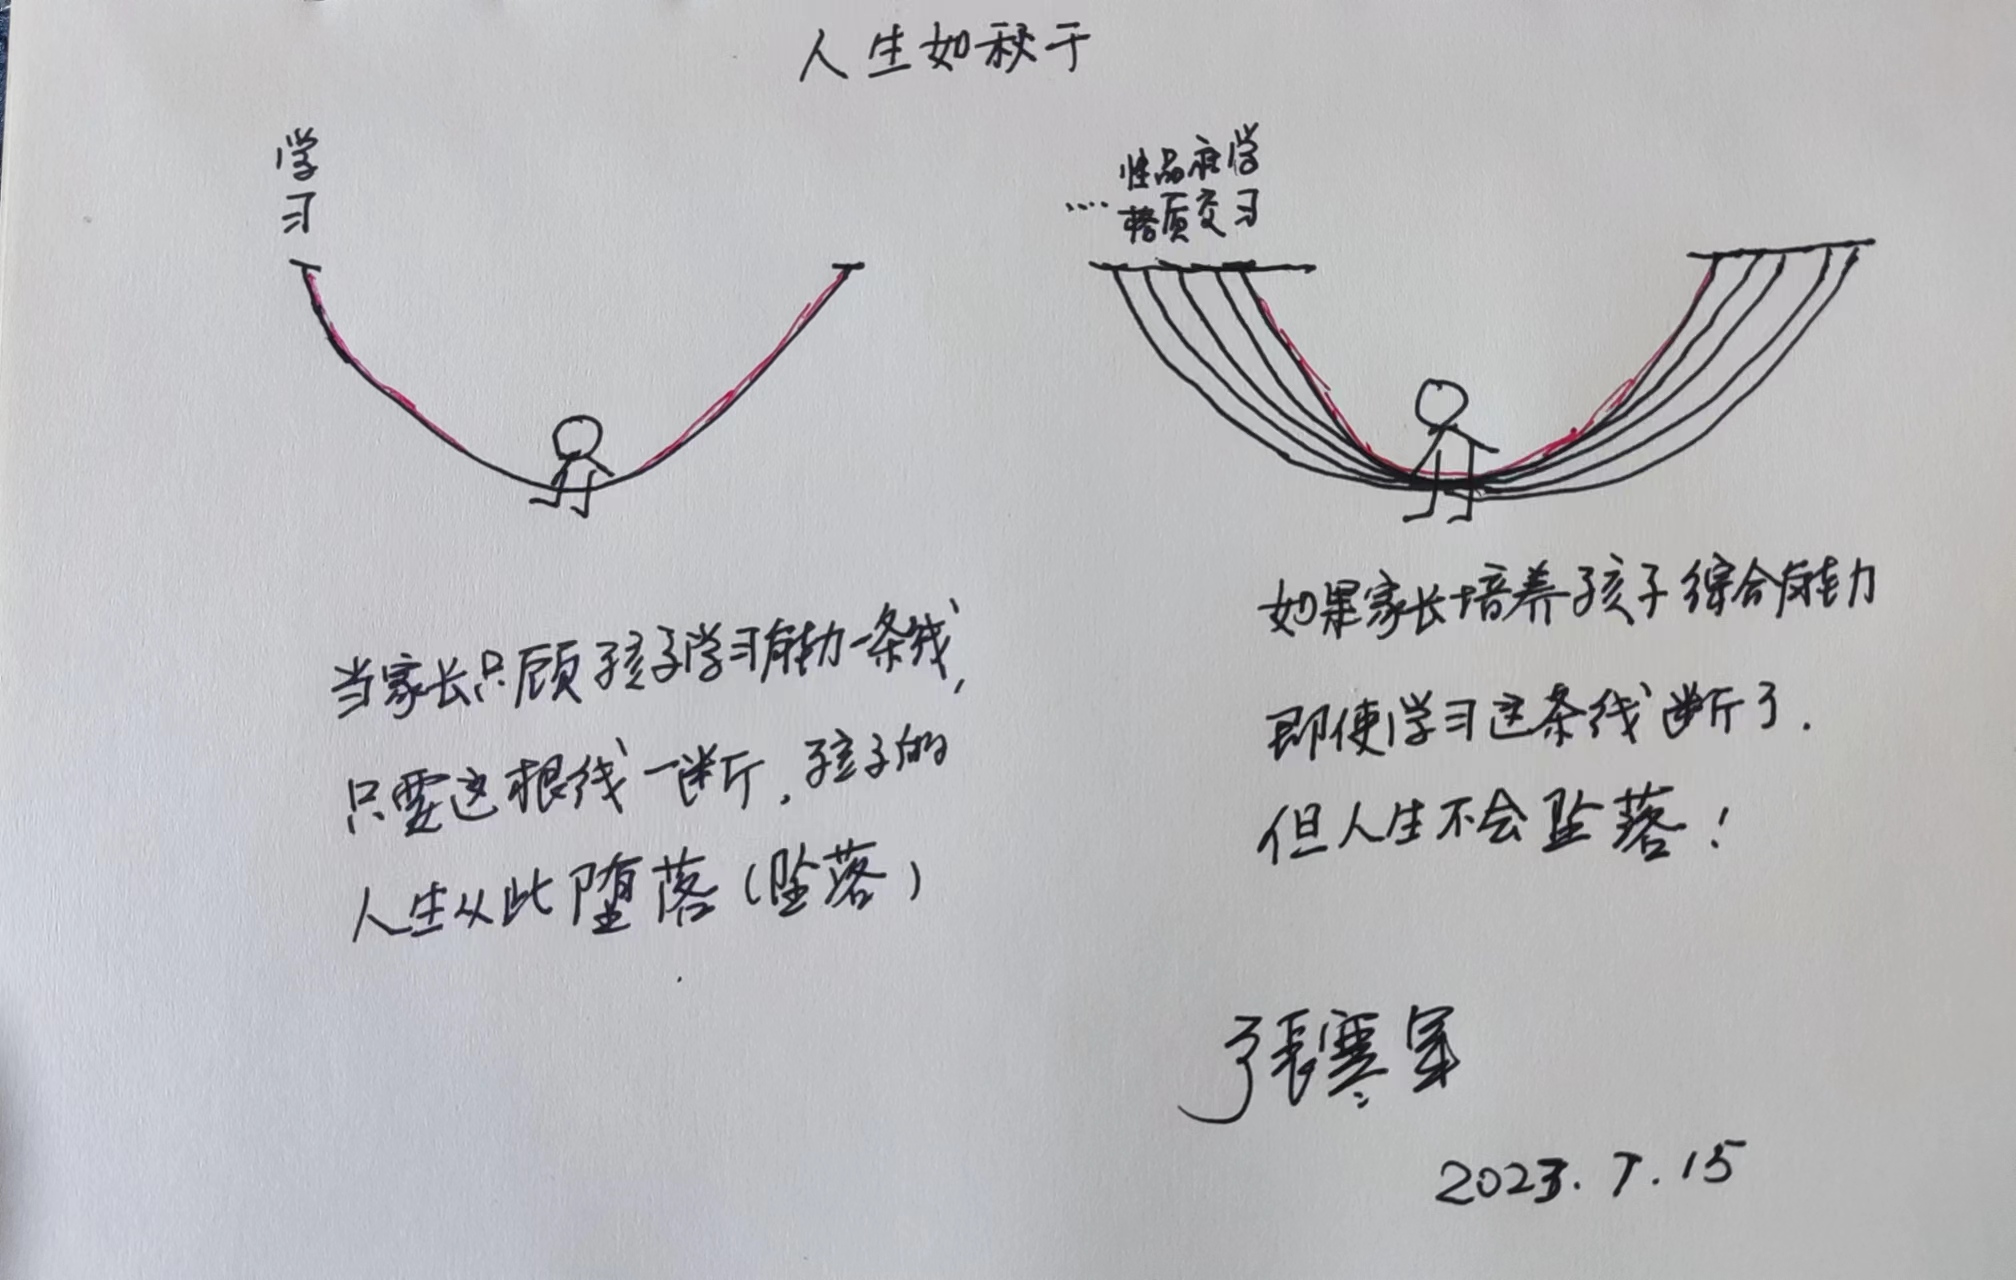 人生如秋千
学习
性格
品质
社交
学习
....
当家长只顾孩子学习能力一条线,
只要这根线一断,孩子的
人生从此堕落(坠落)
如果家长培养孩子综合能力
即使学习这条线断了.
但人生不会坠落!
張寒
2023.7.15